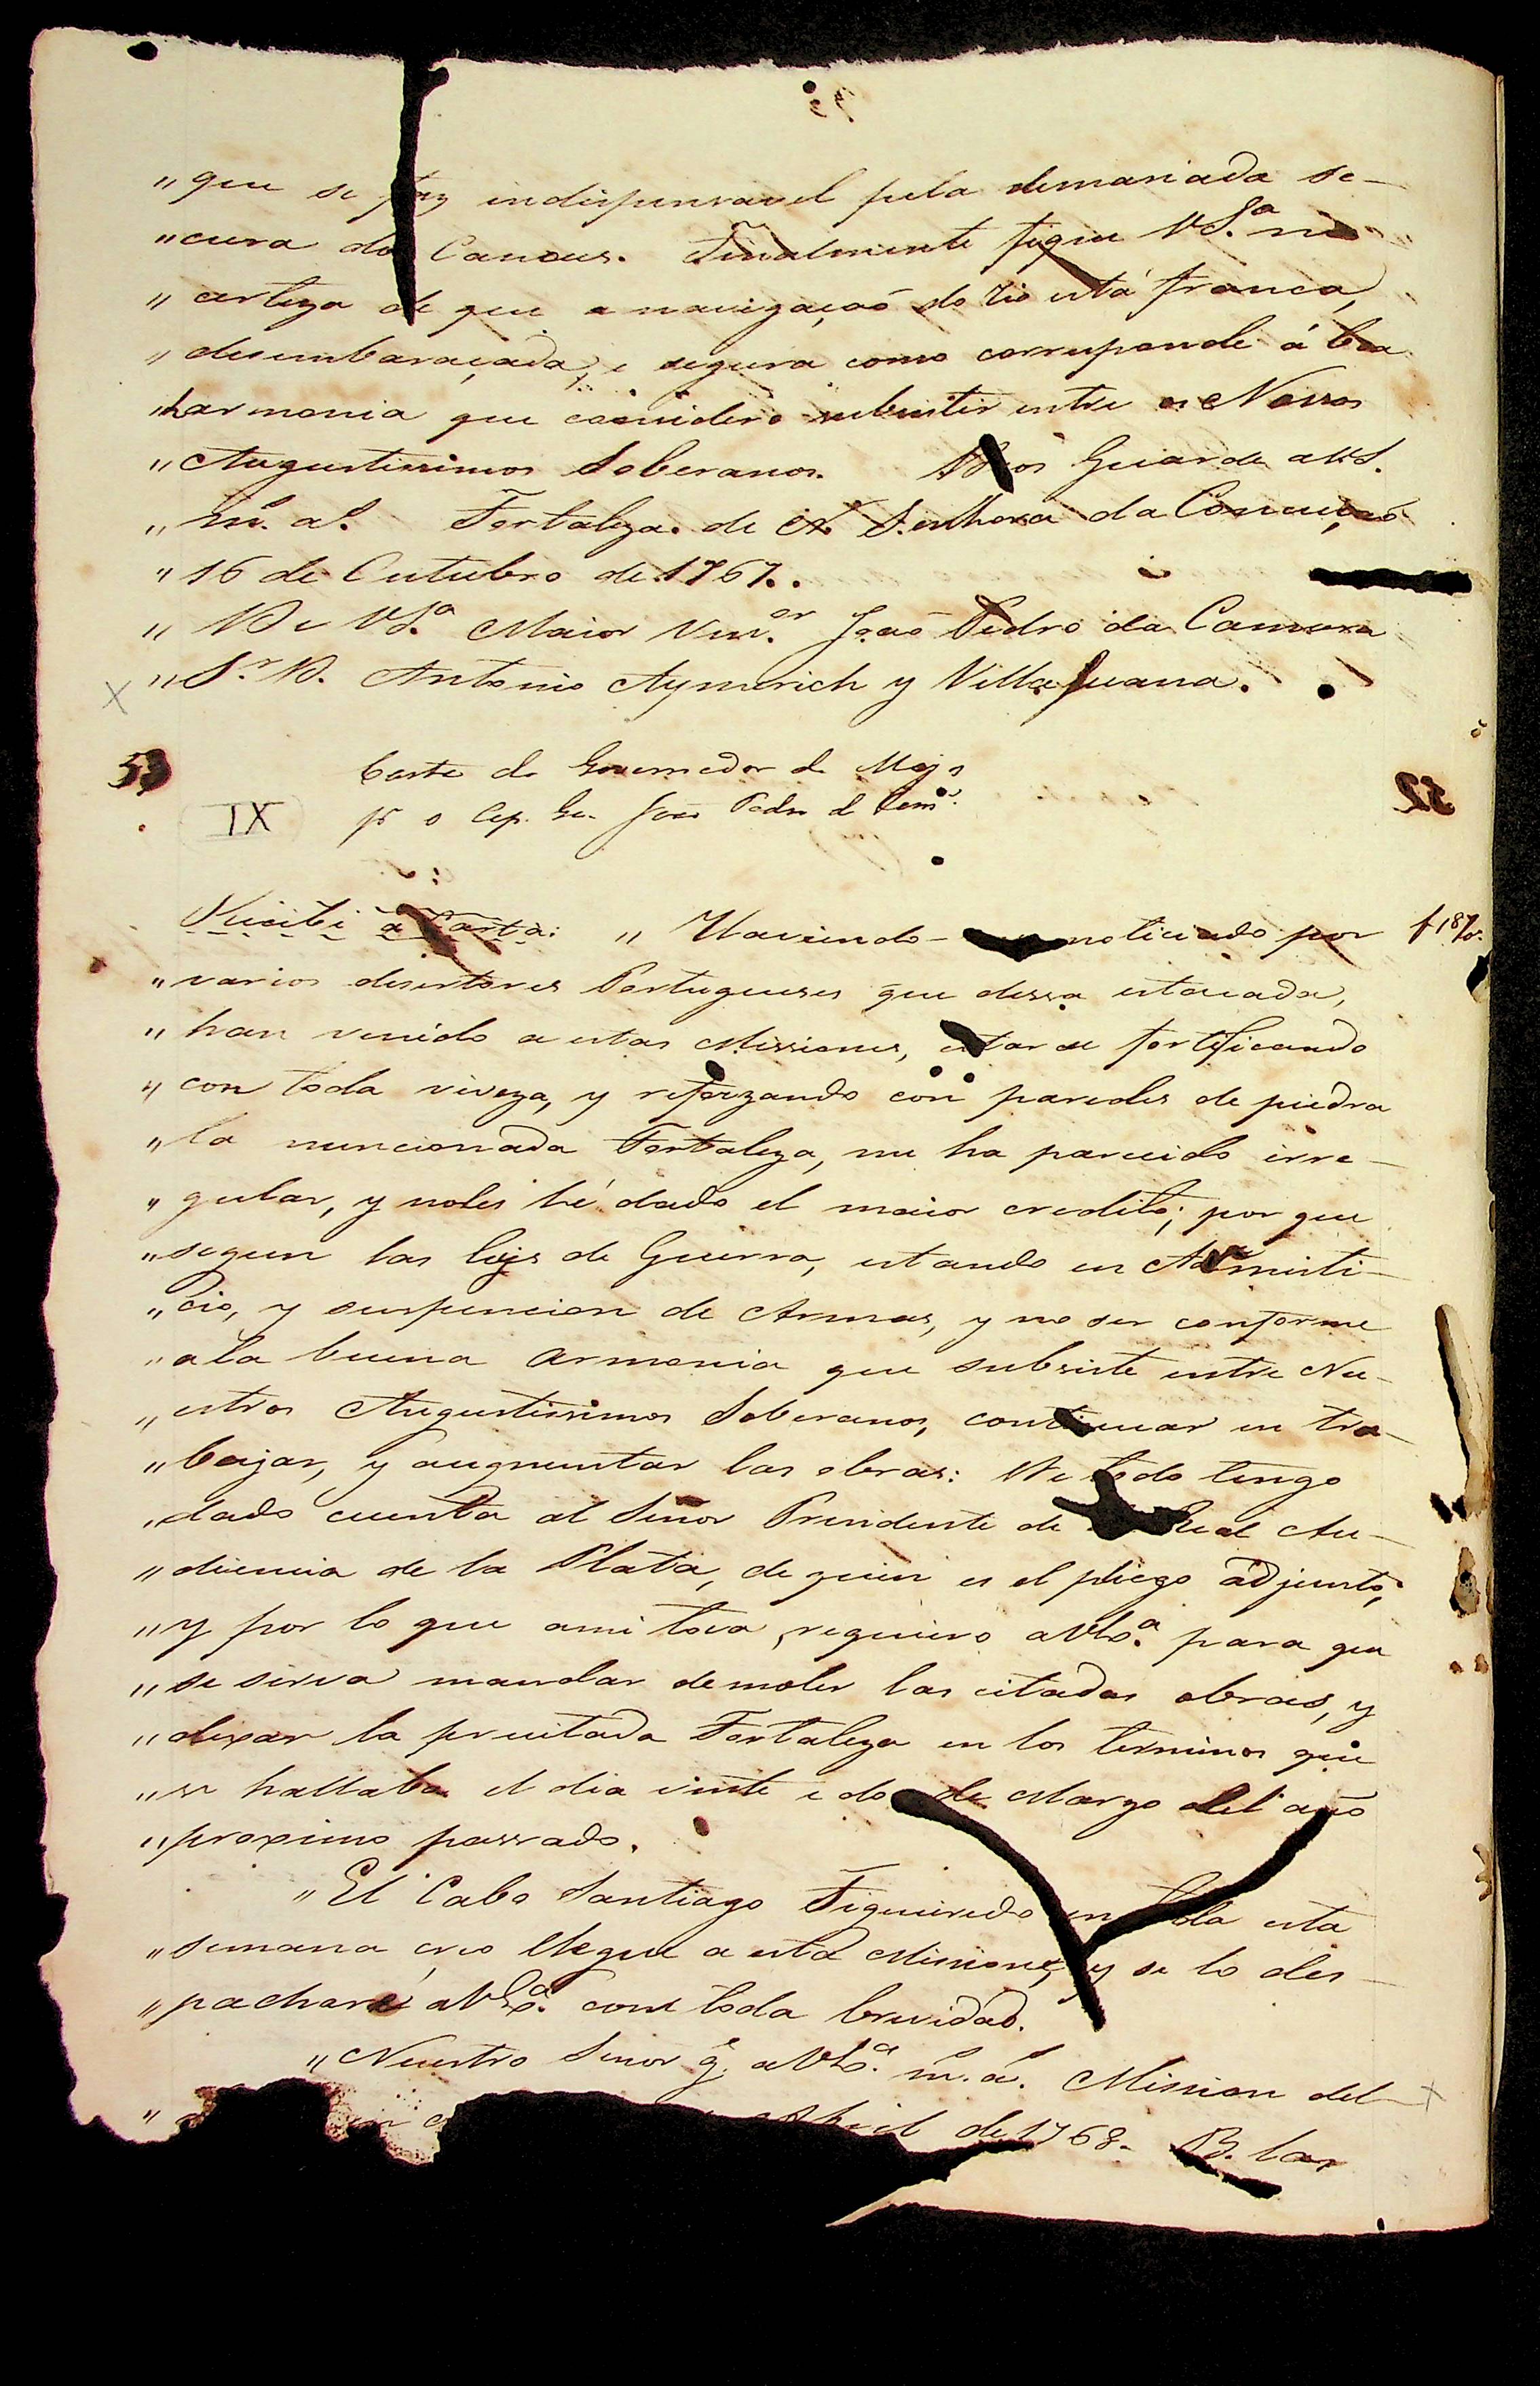 "que se faz indispensavel pela demasiada se-
"cura da Canoas. Finalmente fique VS.ª na
"certeza de que a navigaçaõ do rio está franca,
"desembaraçada, e segura como corresponde á boa
"harmonia que considero subsistir entre os Nossos
"Augustissimos Soberanos. Deos Guarde a VS.
"m.s a.s Fortaleza de N. Senhora da Conceiçaõ
"16 de Outubro de 1767..
"De VS.ª Maior Ven.or Joaõ Pedro da Camara
"S.r D. Antonio Aymerich y Villajuana.
53
52
Carta do Governador de Mojos
IX
pª o Cap. Gen. João Pedro da Camª.
Recebi a Carta: "Haviendo- noticiado por
f 187v.
"varios desertores Portugueses que dessa estacada,
"han venido a estas Missiones, estarse fortificando
"con toda viveza, y reforzando con paredes de piedra
"la mencionada Fortaleza, me ha parecido irre-
"gular, y noles hé dado el maior credito; por que
"segun las lejes de Guerra, estando en Armisti-
"cio, y suspencion de Armas, y no ser conforme
"ala buena armonia que subsiste entre Nu-
"estros Augustissimos Soberanos, continuar en tra-
"bajar, y augmentar las obras: De todo tengo
"dado cuenta al Señor Presidente de Real Au-
"diencia de la Plata, de quien es el pliego adjunto,
"y por lo que ami toca, requiero aVSª. para que
"se sirva mandar demoler las citadas obras, y
"dexar la precitada Fortaleza en los terminos que
"se hallaba el dia vinte e dos de Marzo del año
"proximo passado.
"El Cabo Santiago Figueiredo en toda esta
"semana creo llegue a esta Missiones, y se lo des-
"pacharé aVSª. con toda brevidad.
"Nuestro Senor g.e aVSª. m.s a.s Mission del
" Abril de 1768. B. las